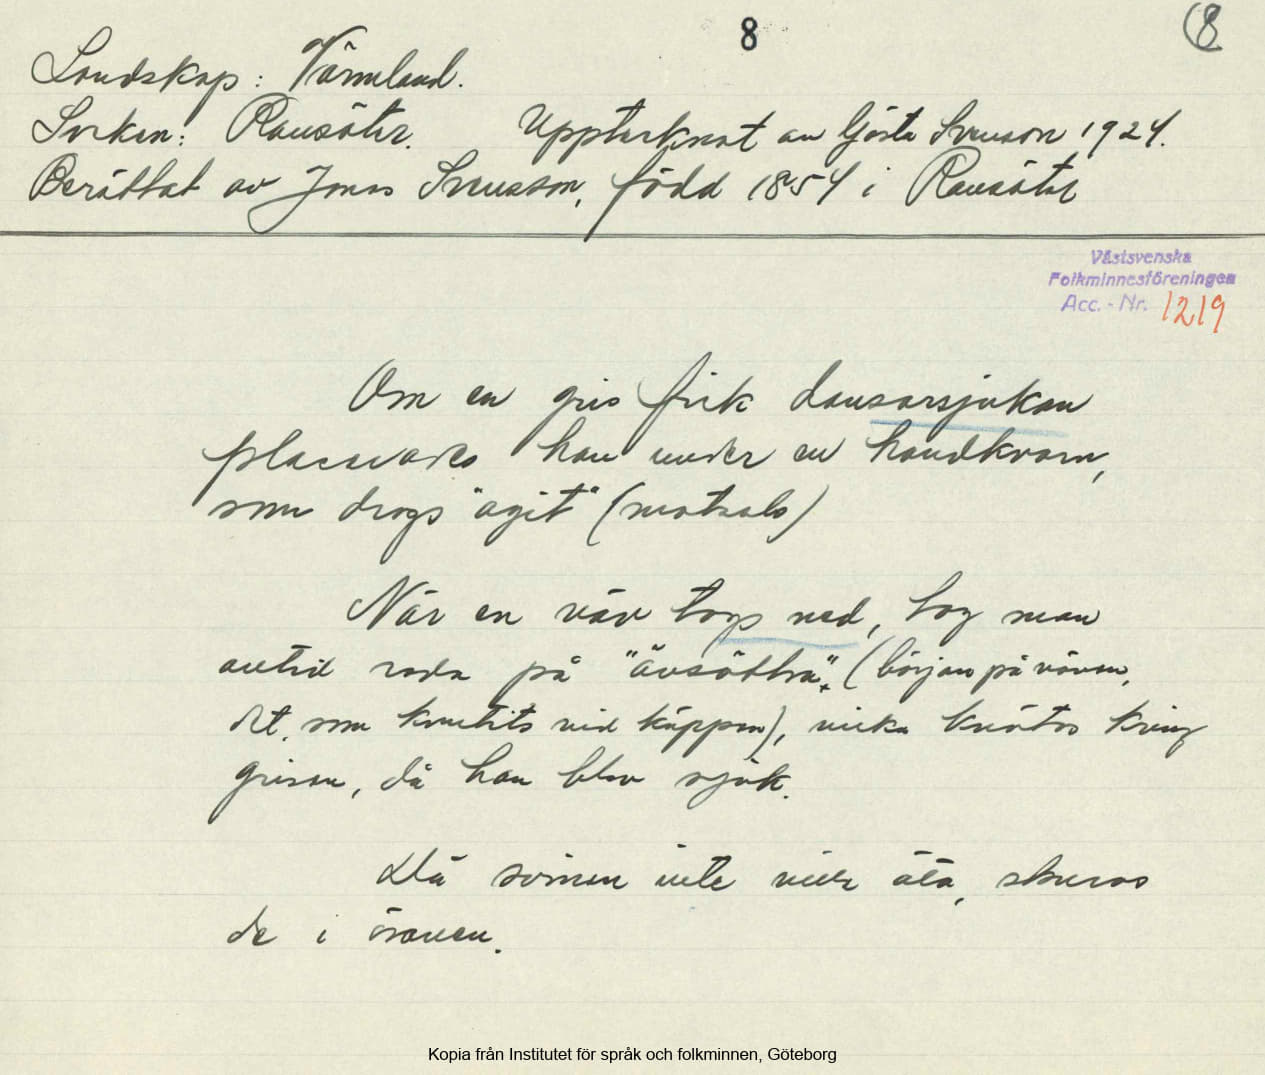 8 (8
Landskap: Värmland.
Socken: Ransäter. Upptecknat av Gösta Svenson 1924.
Berättat av Jonas Svensson, född 1854 i Ransäter
Västsvenska
Folkminnesföreningen
Acc. - Nr. 1219
Om en gris fick dansarsjukan
placerades han under en handkvarn,
som drogs "agit" (motsols)
När en väv togs ned, tog man
alltid reda på "ävsöttra". (början på väven,
det, som knutits vid käppen), vilka knötos kring
grisen, då han blev sjuk.
Då svinen inte ville äta, skuros
de i öronen.
Kopia från Institutet för språk och folkminnen, Göteborg